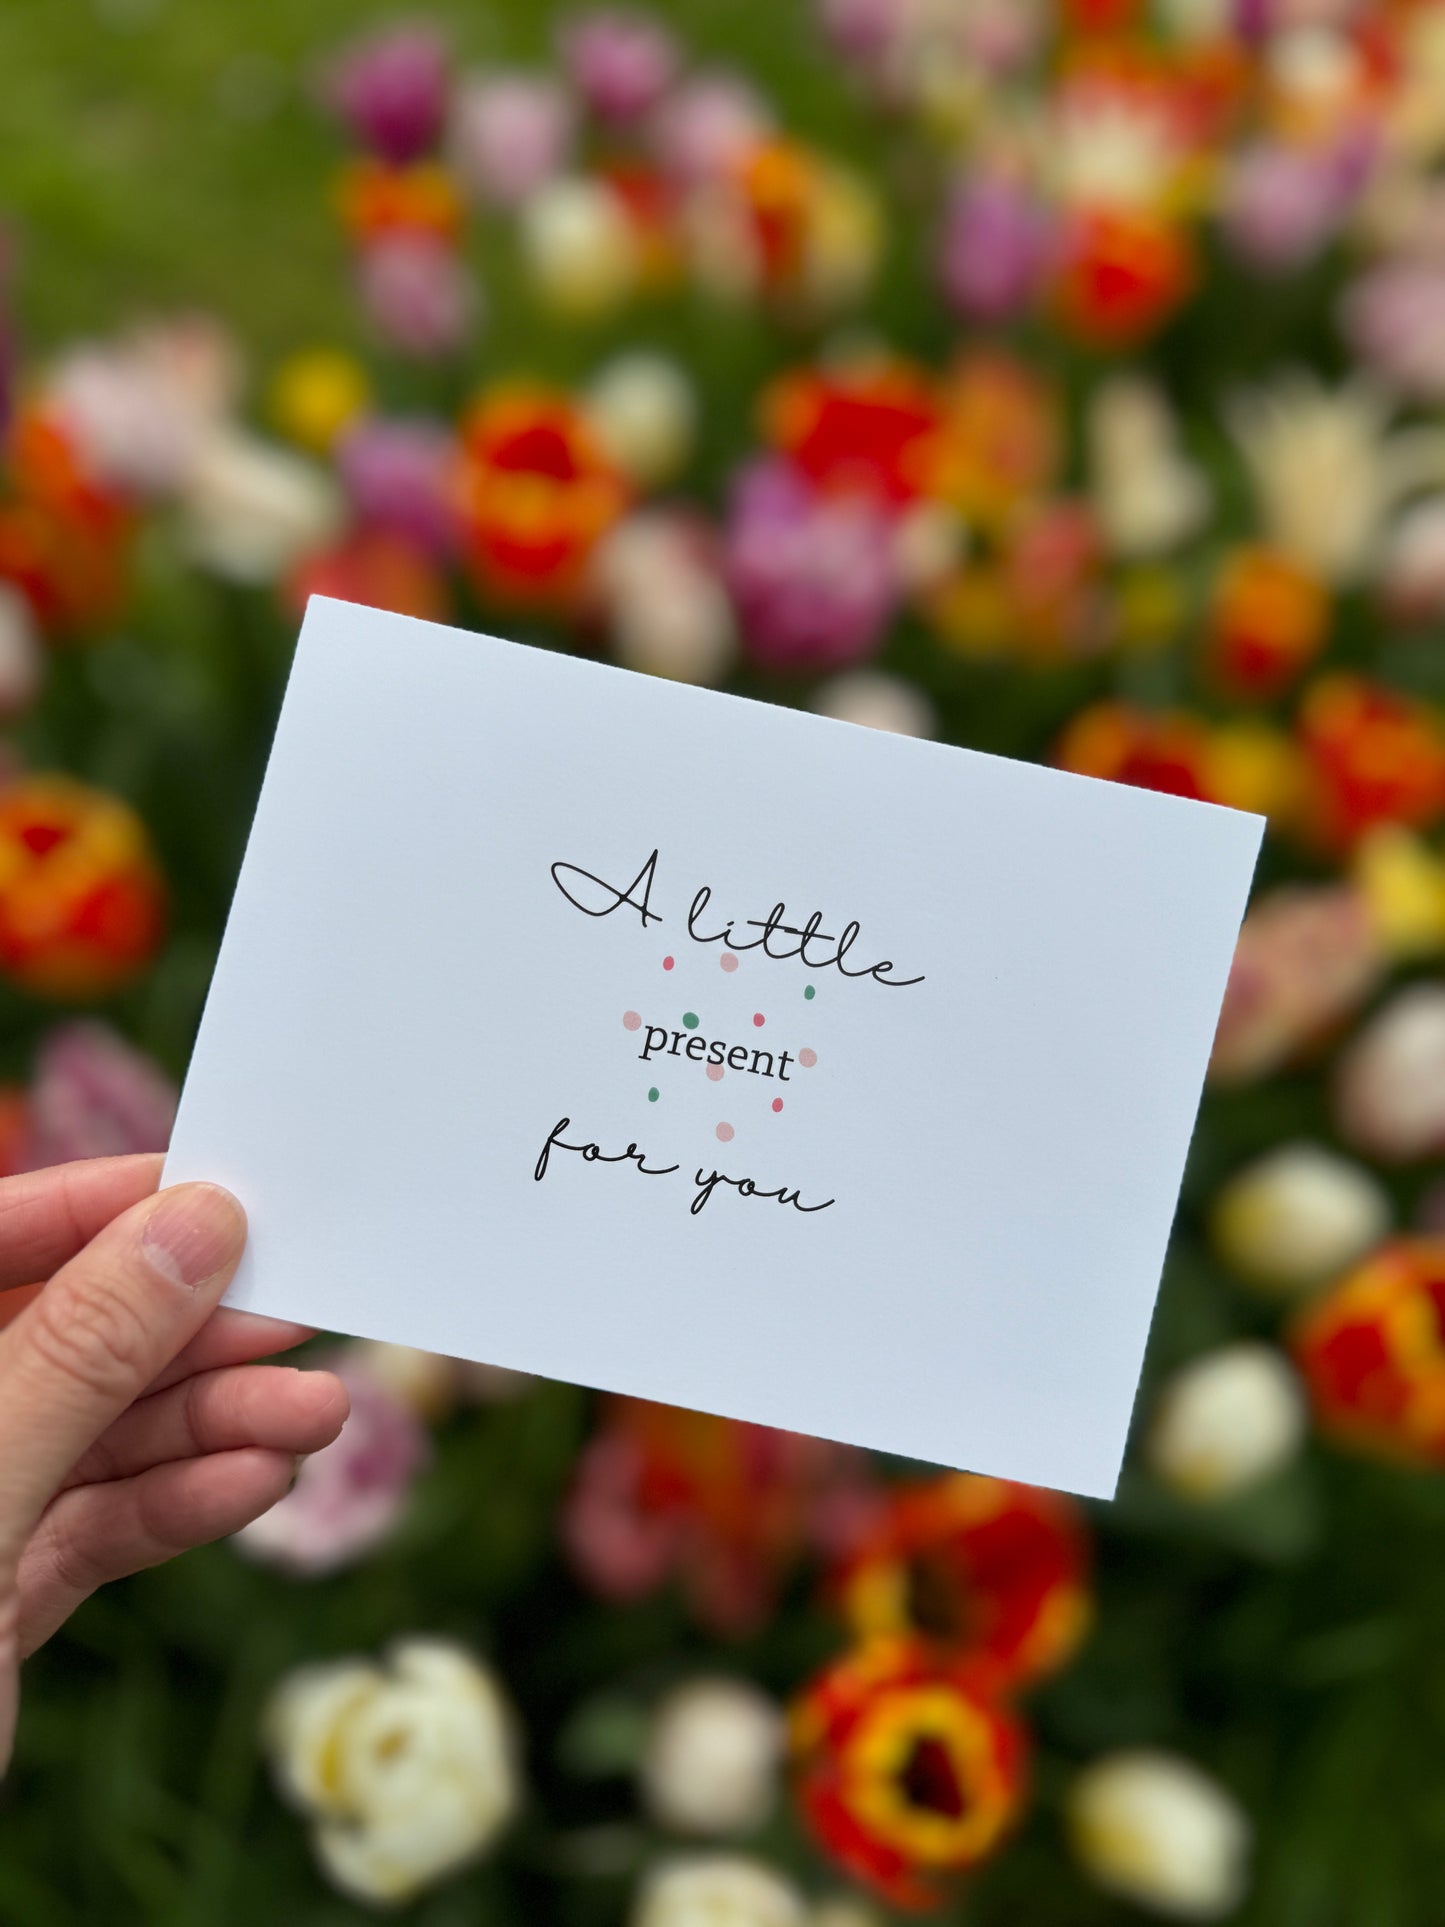 A little
present
for you